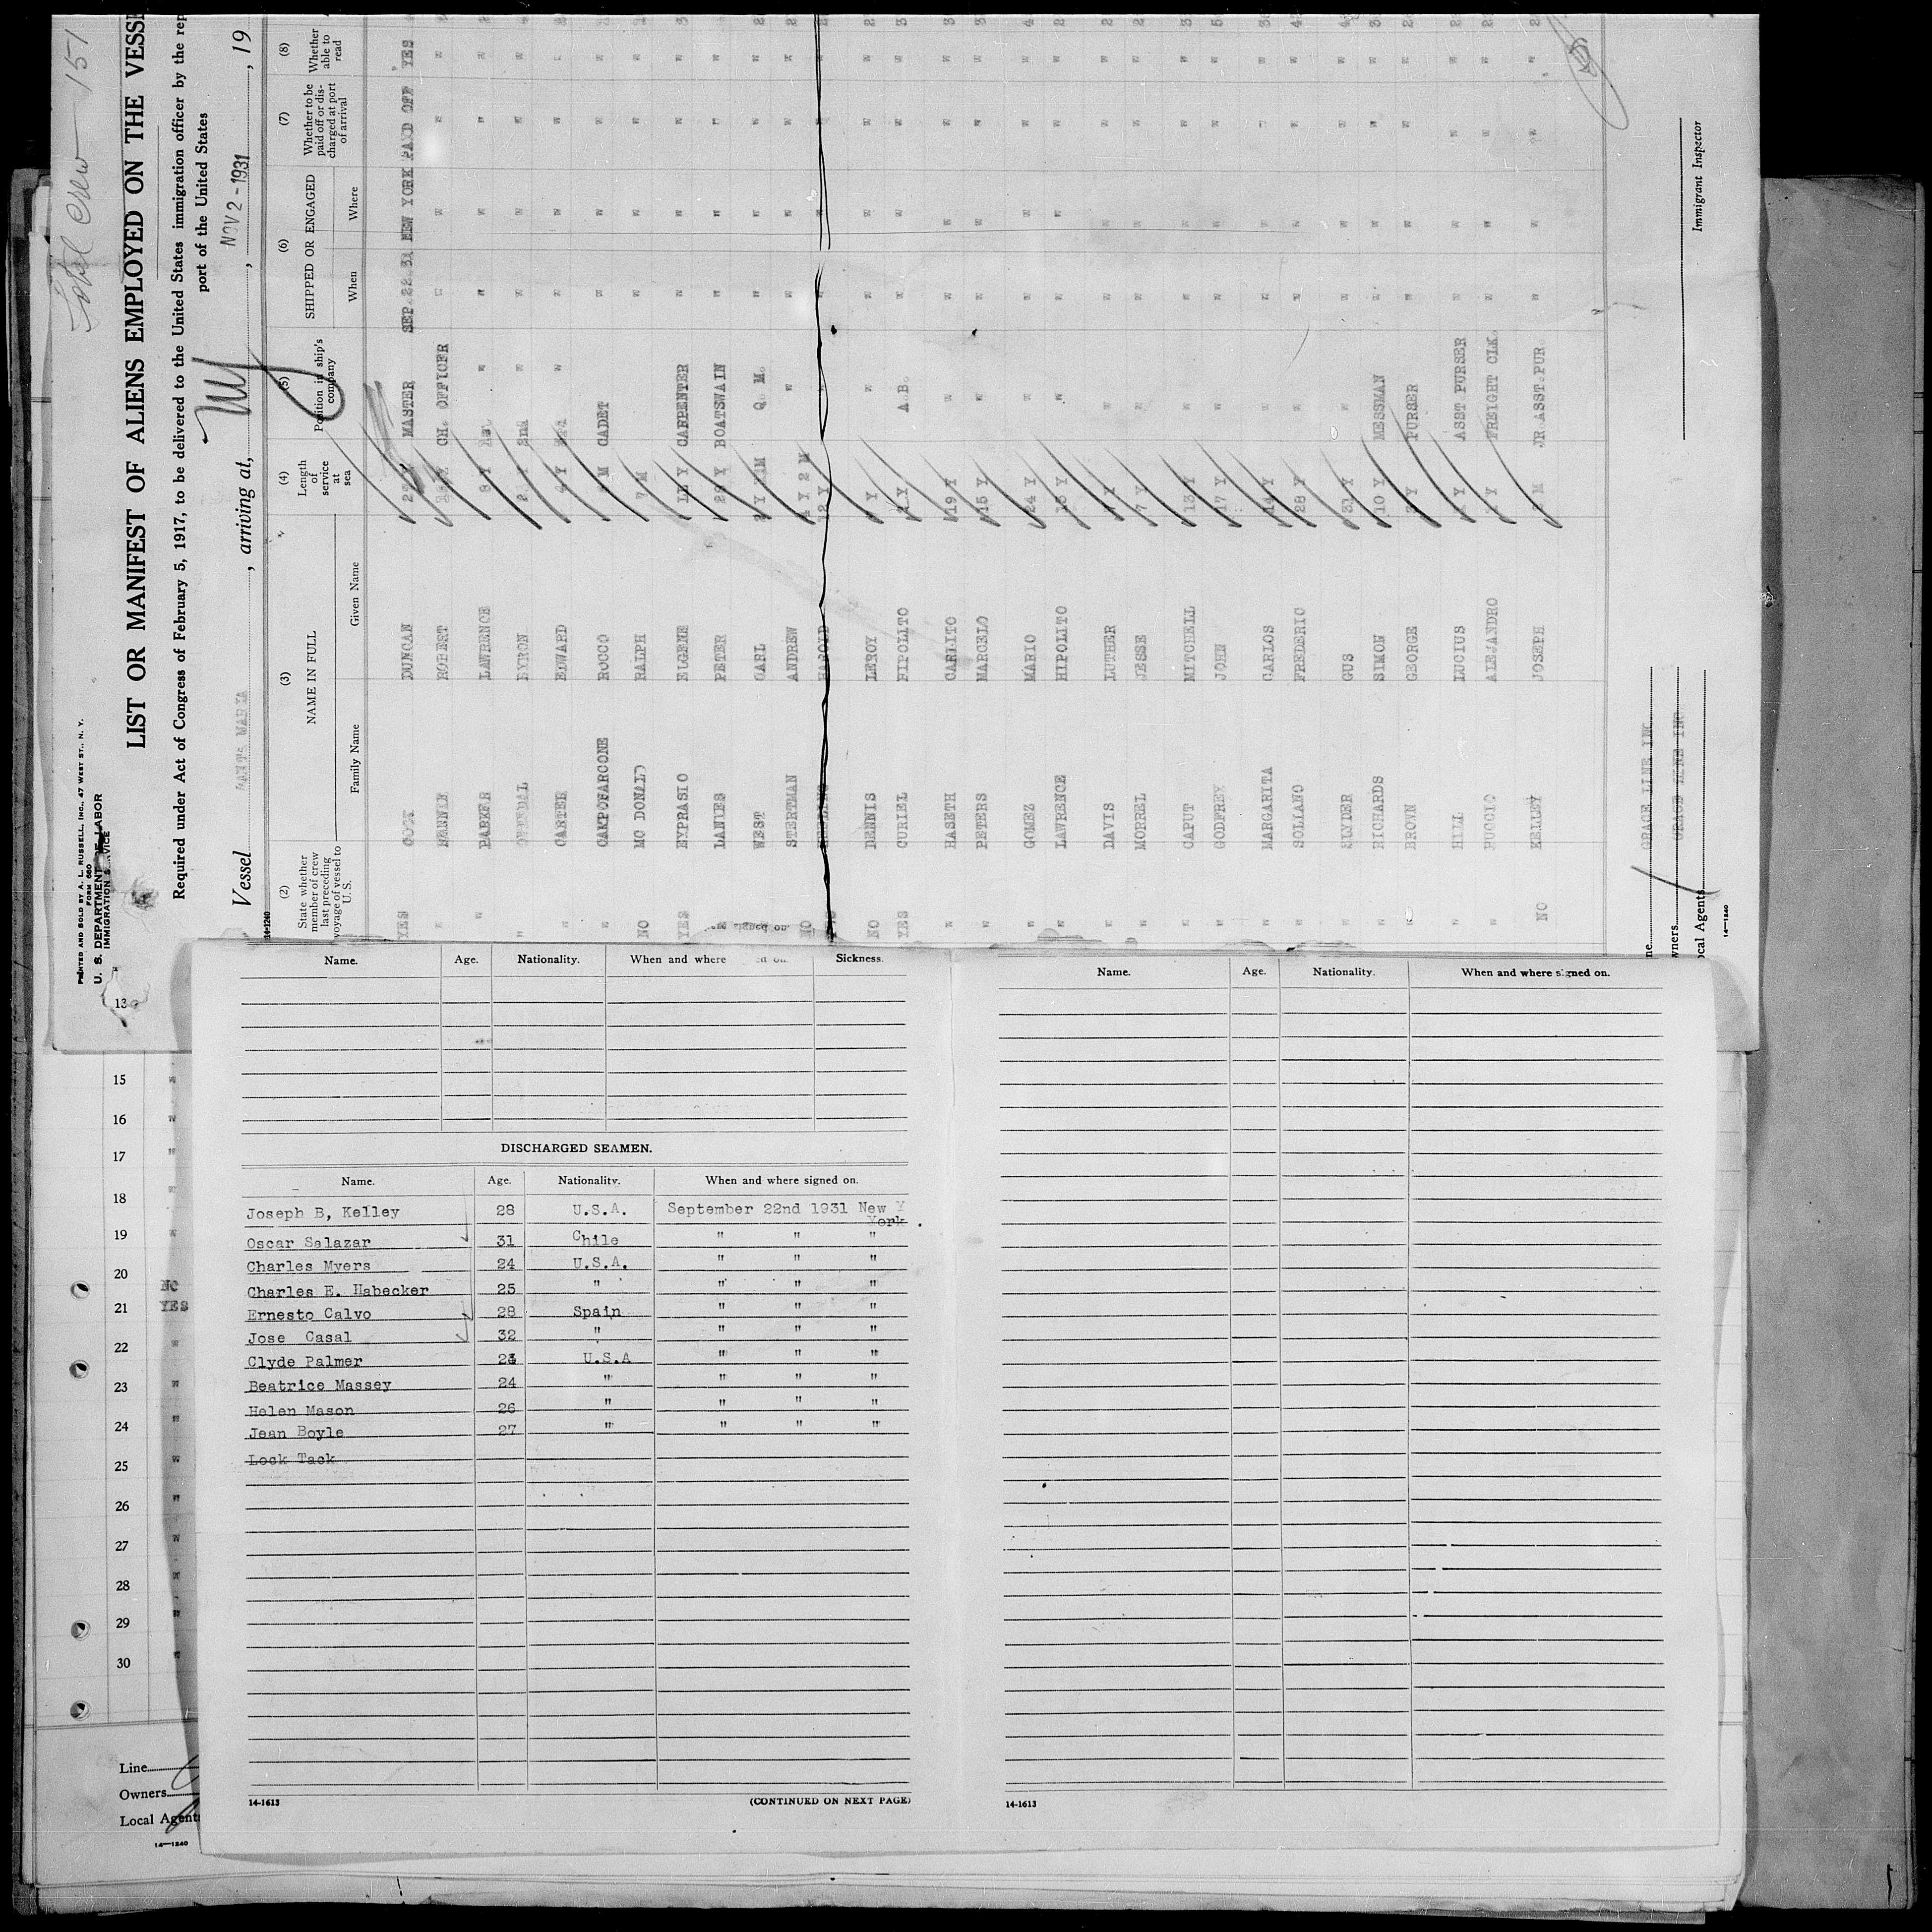 Total Crew 151
PRINTED AND SOLD BY A. L. RUSSELL, INC., 47 WEST ST., N. Y.
FORM 680
U. S. DEPARTMENT OF LABOR
IMMIGRATION SERVICE
LIST OR MANIFEST OF ALIENS EMPLOYED ON THE VESSE
Required under Act of Congress of February 5, 1917, to be delivered to the United States immigration officer by the rep
port of the United States
Vessel SANTA MARIA, arriving at, NY, NOV 2 - 1931, 19
14-1240
(2) State whether member of crew last preceding voyage of vessel to U. S.
(3) NAME IN FULL
Family Name Given Name
(4) Length of service at sea
(5) Position in ship's company
(6) SHIPPED OR ENGAGED
When Where
(7) Whether to be paid off or discharged at port of arrival
(8) Whether able to read
YES COOK DUNCAN MASTER SEP.22.31 NEW YORK PAID OFF YES
" ROBERT CH. OFFICER " " " "
" PARKER LAWRENCE 8 Y 1st " " " " "
" BYRON 2nd " " " " "
" CARTER EDWARD Y 3rd " " " " "
" CAMPOFARCONE ROCCO M CADET " " " "
NO MC DONALD RALPH 7 M " " " "
YES EUPRASIO EUGENE Y CARPENTER " " " "
" LANIES PETER 28 Y BOATSWAIN " " " "
WEST CARL Q. M. " " " "
NO STERTMAN ANDREW Y 2 M " " " " "
YES HAROLD 12 Y " " " "
NO DENNIS LEROY Y " " " " "
YES CURIEL HIPOLITO Y A.B. " " " "
" HASETH CARLITO 19 Y " " " " "
" PETERS MARCELO 15 Y " " " " "
" GOMEZ MARIO 24 Y " " " " "
" LAWRENCE HIPOLITO 15 Y " " " " "
" DAVIS LUTHER Y " " " " "
" MORREL JESSE 7 Y " " " " "
" CAPUT MITCHELL 13 Y " " " " "
" GODFREY JOHN 17 Y " " " " "
" MARGARITA CARLOS 14 Y " " " " "
" SOLIANO FREDERIC 28 Y " " " " "
" SLYDER GUS 31 Y " " " " "
" RICHARDS SIMON 10 Y MESSMAN " " " "
" BROWN GEORGE Y PURSER " " " "
" HILL LUCIUS Y ASST PURSER " " " "
" PUCCIO ALEJANDRO Y FREIGHT CLK. " " " "
NO KELLEY JOSEPH M JR.ASST.PUR. " " " "
GRACE LINE INC
GRACE LINE INC
ne
wners
ocal Agents
14-1240
Immigrant Inspector
13
Name. Age. Nationality. When and where ed on. Sickness.
DISCHARGED SEAMEN.
Name. Age. Nationality. When and where signed on.
Joseph B, Kelley 28 U.S.A. September 22nd 1931 New Y
York.
Oscar Salazar 31 Chile " " "
Charles Myers 24 U.S.A. " " "
Charles E. Habecker 25 " " " "
Ernesto Calvo 28 Spain " " "
Jose Casal 32 " " " "
Clyde Palmer U.S.A " " "
Beatrice Massey 24 " " " "
Helen Mason 26 " " " "
Jean Boyle 27 " " " "
Lock Tack
14-1613
(CONTINUED ON NEXT PAGE)
Name. Age. Nationality. When and where signed on.
14-1613
15 "
16 "
17 "
18 "
19 "
20 NO
21 YES
22 "
23 "
24 "
25 "
26 "
27 "
28 "
29 "
30 "
Line
Owners
Local Agents
14-1240